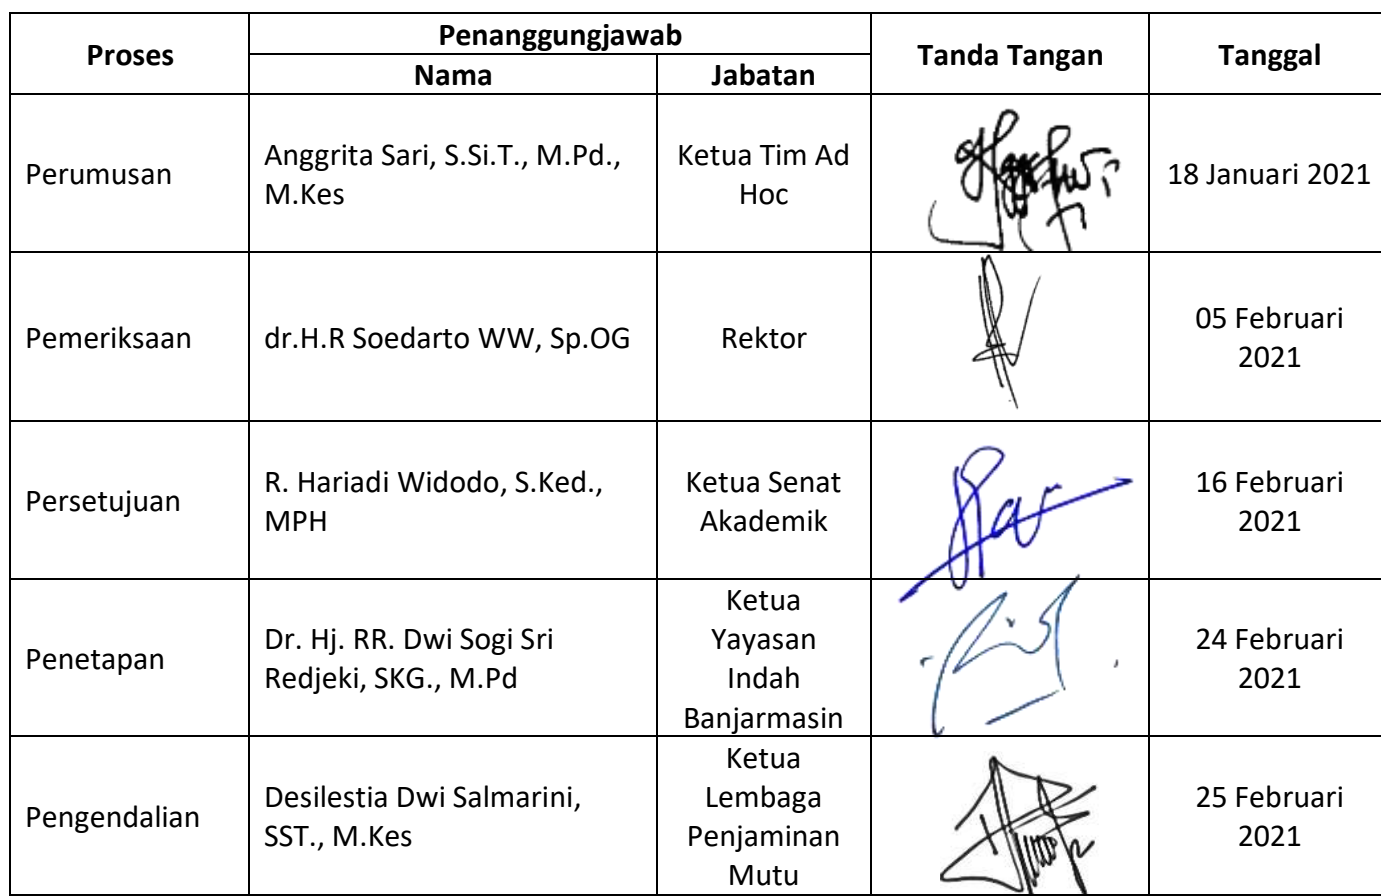 Proses
Penanggungjawab
Tanda Tangan
Tanggal
Nama
Jabatan
Perumusan
Anggrita Sari, S.Si.T., M.Pd.,
M.Kes
Ketua Tim Ad
Hoc
18 Januari 2021
Pemeriksaan
dr.H.R Soedarto WW, Sp.OG
Rektor
05 Februari
2021
Persetujuan
R. Hariadi Widodo, S.Ked.,
MPH
Ketua Senat
Akademik
16 Februari
2021
Penetapan
Dr. Hj. RR. Dwi Sogi Sri
Redjeki, SKG., M.Pd
Ketua
Yayasan
Indah
Banjarmasin
24 Februari
2021
Pengendalian
Desilestia Dwi Salmarini,
SST., M.Kes
Ketua
Lembaga
Penjaminan
Mutu
25 Februari
2021